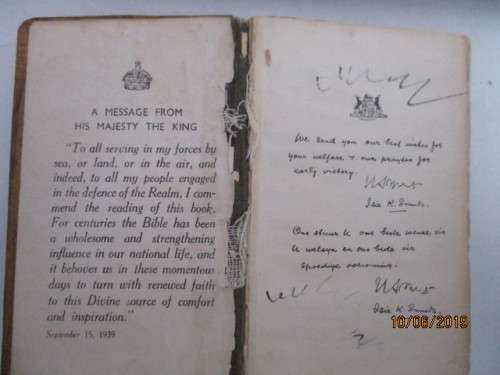 A MESSAGE FROM
HIS MAJESTY THE KING
"To all serving in my forces by
sea, or land, or in the air, and
indeed, to all my people engaged
in the defence of the Realm, I com-
mend the reading of this book.
For centuries the Bible has been
a wholesome and strengthening
influence in our national life, and
it behoves us in these momentous
days to turn with renewed faith
to this Divine source of comfort
and inspiration."
September 15, 1939
We send you our best wishes for
your welfare & our prayers for
early victory.
Isie K. Smuts.
Ons stuur u ons beste wense vir
u welsyn en ons bede vir
spoedige oorwinning.
Isie K. Smuts.
10/06/2019